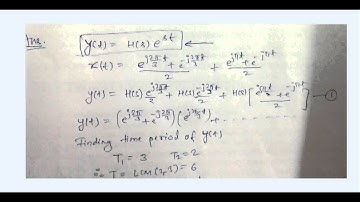 Ans.
y(t) = H(s) e^{st} ←
x(t) = (e^{j2π/3 t} + e^{-j2π/3 t})/2 + (e^{jπt} + e^{-jπt})/2
y(t) = H(s) e^{j2π/3 t}/2 + H(s) e^{-j2π/3 t}/2 + H(s) [ + e^{-jπt} / 2 ] —①
y(t) = ( + ) ( ) + ......
Finding time period of y(t)
T₁ = 3 T₂ = 2
∴ T = LCM(2,3) = 6